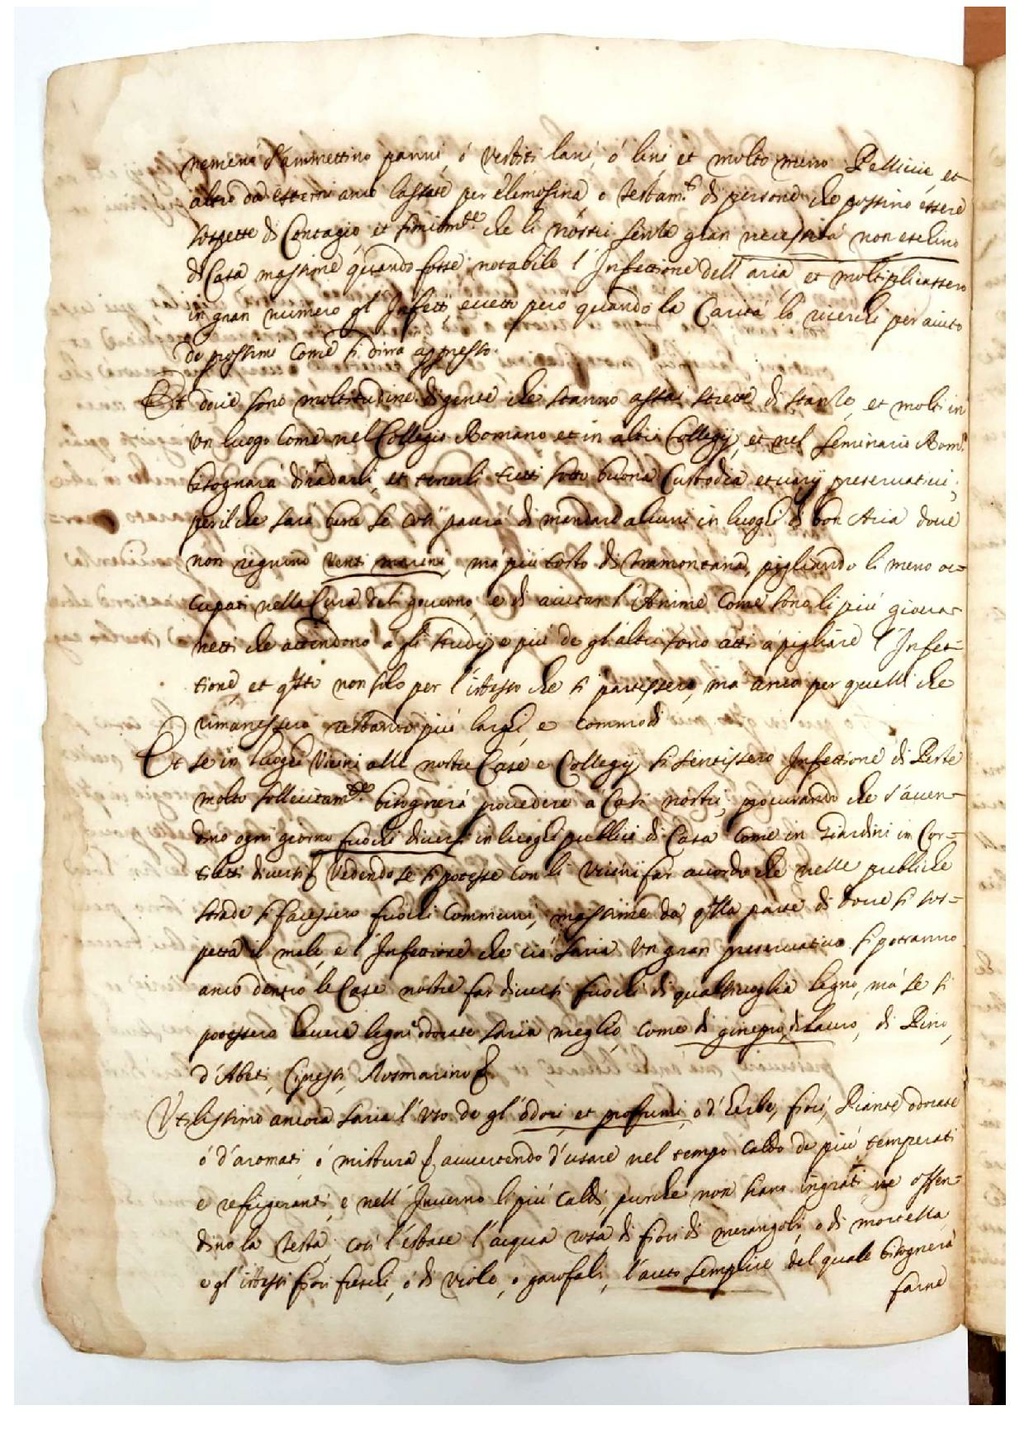 nemeno s'ammettino panni ó vestiti lani, ó lini et molto meno Pellicie, et
altro da esterni anco lassate per elimosina o testam.to di persone che possino essere
sospette di Contagio et similm.te che li nostri senza gran necessità non eschino
di Casa, massime quando fosse notabile l'Infettione dell'aria, et moltiplicassero
in gran numero gl'Infetti, eccetto però quando la Carità lo ricerchi per aiuto
de prossimi come si dirrà appresso.
Et dove sono moltitudine di gente che stanno assai strette di stanze, et molti in
un luogo come nel Collegio Romano et in altri Collegij, et nel seminario Rom.o
bisognarà diradarli, et tenerli tutti sotto buona Custodia et varij preservativi,
per il che sarà bene se così parerà di mandare alcuni in luoghi di bon Aria dove
non regnino venti marini, ma più tosto di tramontana, pigliando li meno oc-
cupati nella Cura del governo, e di aiutar l'Anime come sono li più giova-
netti che attendono a gli studij e più de gl'altri sono atti a pigliare l'Infet-
tione, et q.sto non solo per l'istessi che si partissero, ma anco per quelli che
rimanessero restando più larghi e commodi
Et se in luoghi vicini alle nostre Case e Collegij si sentissero Infettione di Peste
molto sollecitam.te bisognerà provedere a Casi nostri, procurando che s'accen-
dino ogni giorno fuochi diversi in luoghi publici di Casa come in Giardini in Cor-
tiletti diversi & vedendo se si potesse con li vicini far accordo che nelle publiche
strade si facessero fuochi communi, massime da q.lla parte di dove si sos-
petta il male, e l'Infettione che ciò saria un gran preservativo si potranno
anco dentro le Case nostre far diversi fuochi di qualsivoglia legno, mà se si
potessero havere legni odorate saria meglio come di ginepro, di Lauro, di Pino,
d'Abeti, Cipressi, Rosmarino &
Utilissimo ancora saria l'uso de gl'odori et profumi, o d'Erbe, fiori, Piante odorate
ó d'aromati ó mistura & avvertendo d'usare nel tempo caldo de più temperati
e refrigeranti, e nell'Inverno li più caldi, purche non siano ingrati ne offen-
dino la testa, così l'estate l'acqua rosa di fiori di merangoli, o di mortella,
o gl'istessi fiori freschi, ó di viole, o garofali, l'aceto semplice del quale bisognerà
farne